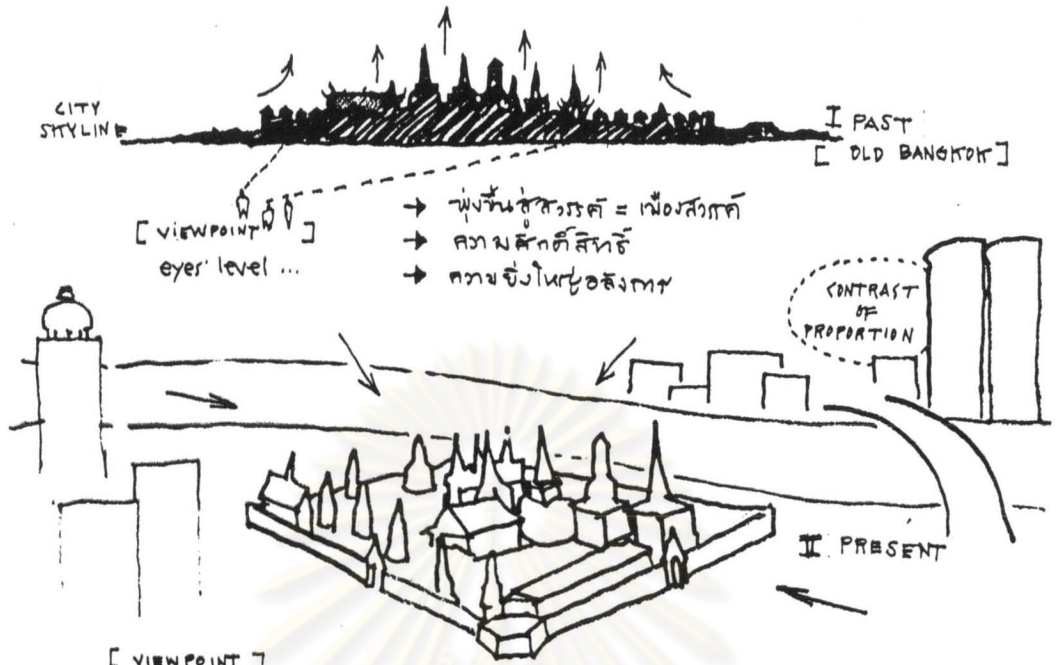 CITY
SKYLINE
I PAST
[ OLD BANGKOK ]
[ VIEWPOINT ]
eyes' level ...
→ พุ่งขึ้นสู่สวรรค์ = เมืองสวรรค์
→ ความศักดิ์สิทธิ์
→ ความยิ่งใหญ่อลังการ
CONTRAST
OF
PROPORTION
II PRESENT
[ VIEWPOINT ]